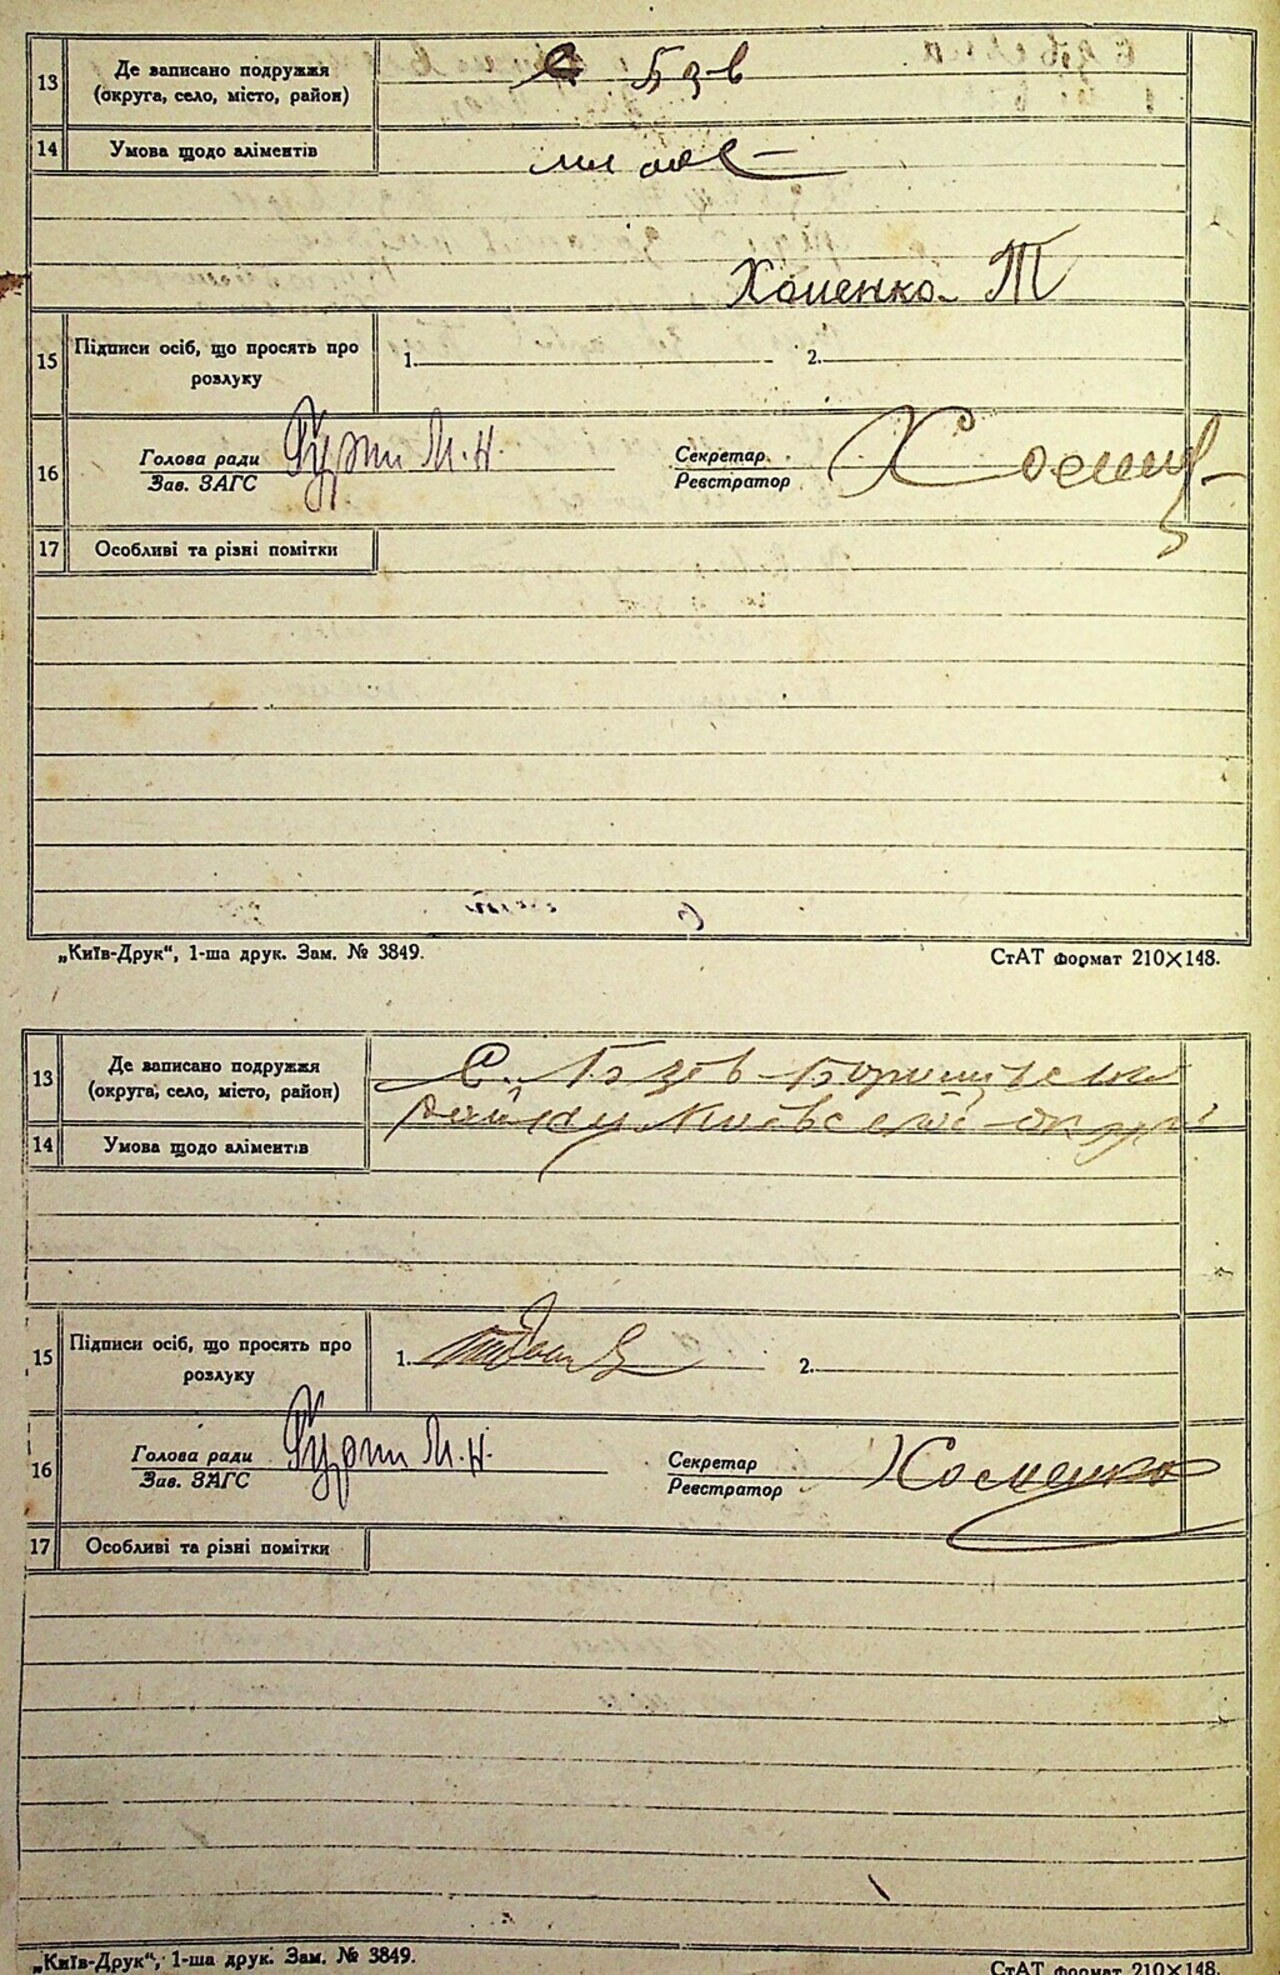 13 Де записано подружжя
(округа, село, місто, район)
с Бзів
14 Умова щодо аліментів
Хоменко Т
15 Підписи осіб, що просять про
розлуку
1. 2.
16 Голова ради
Зав. ЗАГС
М. Н.
Секретар
Реєстратор
17 Особливі та різні помітки
„Київ-Друк“, 1-ша друк. Зам. № 3849. СтАТ формат 210×148.
13 Де записано подружжя
(округа, село, місто, район)
С. Бзов
району Київської округи
14 Умова щодо аліментів
15 Підписи осіб, що просять про
розлуку
1. 2.
16 Голова ради
Зав. ЗАГС
М. Н.
Секретар
Реєстратор
Хоменко
17 Особливі та різні помітки
„Київ-Друк“, 1-ша друк. Зам. № 3849. СтАТ формат 210×148.